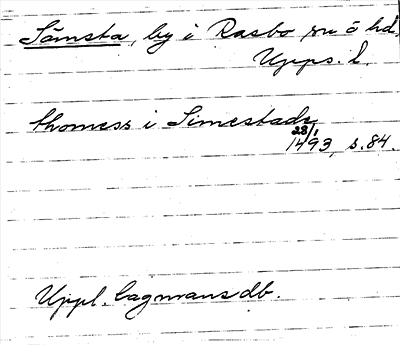 Sämsta, by i Rasbo sn ö hd,
Upps. l.
thomess i Simestade
28/1
1493, s. 84.
Uppl. lagmansdb.